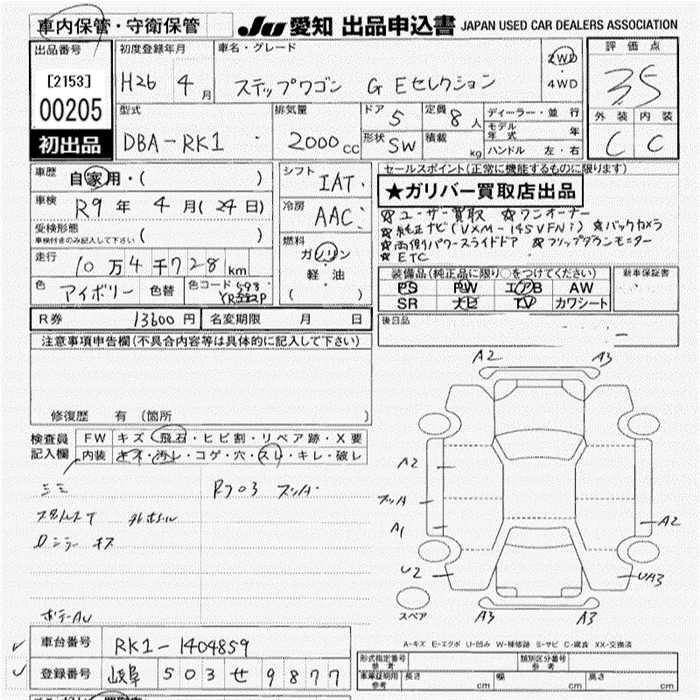 車内保管・守衛保管
JU 愛知 出品申込書 JAPAN USED CAR DEALERS ASSOCIATION
出品番号 初度登録年月 車名・グレード 2WD 4WD 評価点
[2153] H26 4月 ステップワゴン G Eセレクション 3.5
00205
初出品
型式 DBA-RK1 排気量 2000cc
ドア 5 定員 8人
形状 SW 積載 kg
ディーラー・並行
モデル年式 年
ハンドル 左・右
外装 内装
C C
車歴 自家用・( )
車検 R9年4月(24日)
受検形態
車検付きのみ記入して下さい ( )
走行 10万4千728km
色 アイボリー 色替 色コード
シフト IAT
冷房 AAC
燃料 ガソリン
軽・油
( )
セールスポイント(正常に機能するものに限ります)
★ガリバー買取店出品
☆ユーザー買取 ☆ワンオーナー
☆純正ナビ(VXM-145VFNi) ☆バックカメラ
☆両側パワースライドドア ☆フリップダウンモニター
☆ETC
装備品(純正品に限り○をつけてください) 新車保証書
PS PW エアB AW
SR ナビ TV カワシート
R券 13600円 名変期限 月 日
後日品
注意事項申告欄(不具合内容等は具体的に記入して下さい)
修復歴 有(箇所 )
検査員記入欄 FW キズ・飛石・ヒビ割・リペア跡・X要
内装 キズ・汚レ・コゲ・穴・スレ・キレ・破レ
A2 A3
A2
A1 A2
U2 UA3
A3 A3
スペア
A-キズ E-エクボ U-凹み W-補修跡 S-サビ C-腐食 XX-交換済
車台番号 RK1-1404859
登録番号 岐阜 503 せ 9877
形式指定番号 参考 類別区分番号 参考
車庫証明用 参考 長さ cm 幅 cm 高さ cm